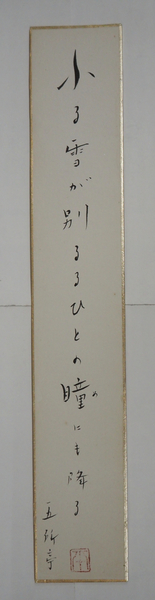 ふる雪が別るるひとの瞳にも降る
五所亭